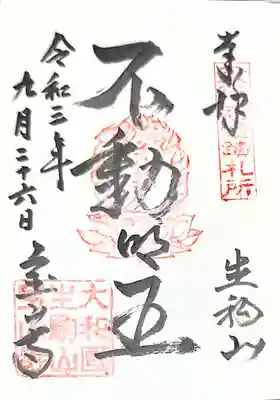 奉拝
札所
生駒山
不動明王
令和三年
九月二十六日
宝山寺
大和國
生駒山